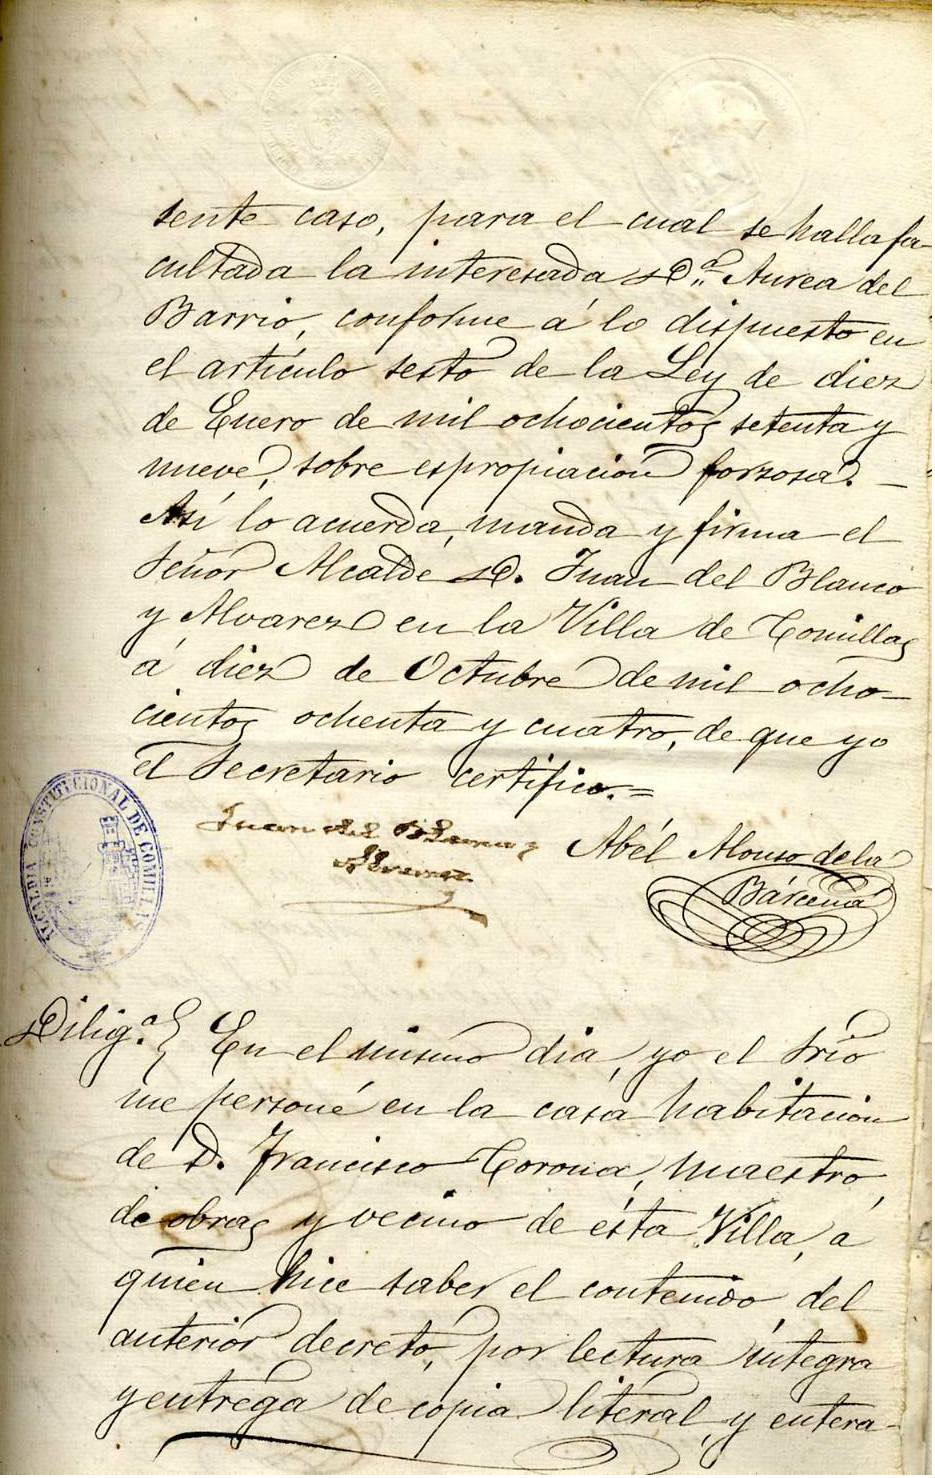 sente caso, para el cual se halla fa-
cultada la interesada Dª. Aurea del
Barrio, conforme á lo dispuesto en
el artículo sesto de la Ley de diez
de Enero de mil ochocientos setenta y
nueve, sobre espropiación forzosa. —
Así lo acuerda, manda y firma el
Señor Alcalde D. Juan del Blanco
y Alvarez en la Villa de Comillas
á diez de Octubre de mil ocho-
cientos ochenta y cuatro, de que yo
el Secretario certifico.=
Juan del Blanco y
Alvarez
Abél Alonso de la
Bárcena
ALCALDIA CONSTITUCIONAL DE COMILLAS
Diligª. } En el mismo dia, yo el Srio
me personé en la casa habitación
de D. Francisco Corona, maestro
de obras y vecino de ésta Villa, á
quien hice saber el contenido del
anterior decreto, por lectura íntegra
y entrega de copia literal, y entera-